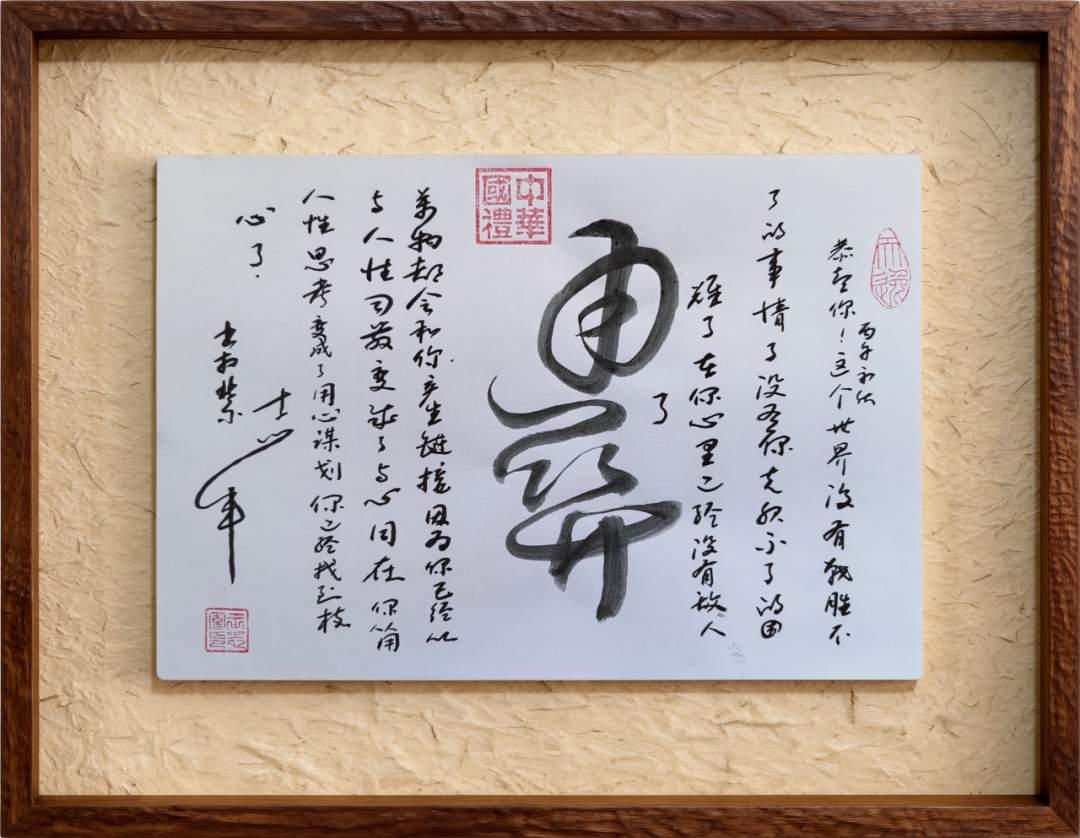 丙午初伏
恭喜你！这个世界没有战胜不
了的事情了没有你克服不了的困
难了在你心里已经没有敌人
了
中華國禮
萬物都会和你产生链接因为你已经从
与人性变成了与心同在你用
人性思考变成了用心谋划你已经找到核
心了.